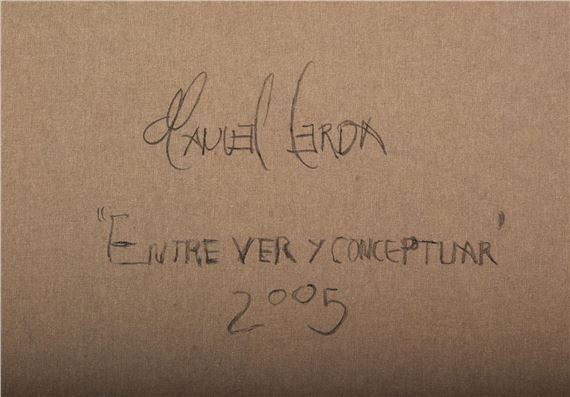 Manuel Cerda
"ENTRE VER Y CONCEPTUAR"
2005